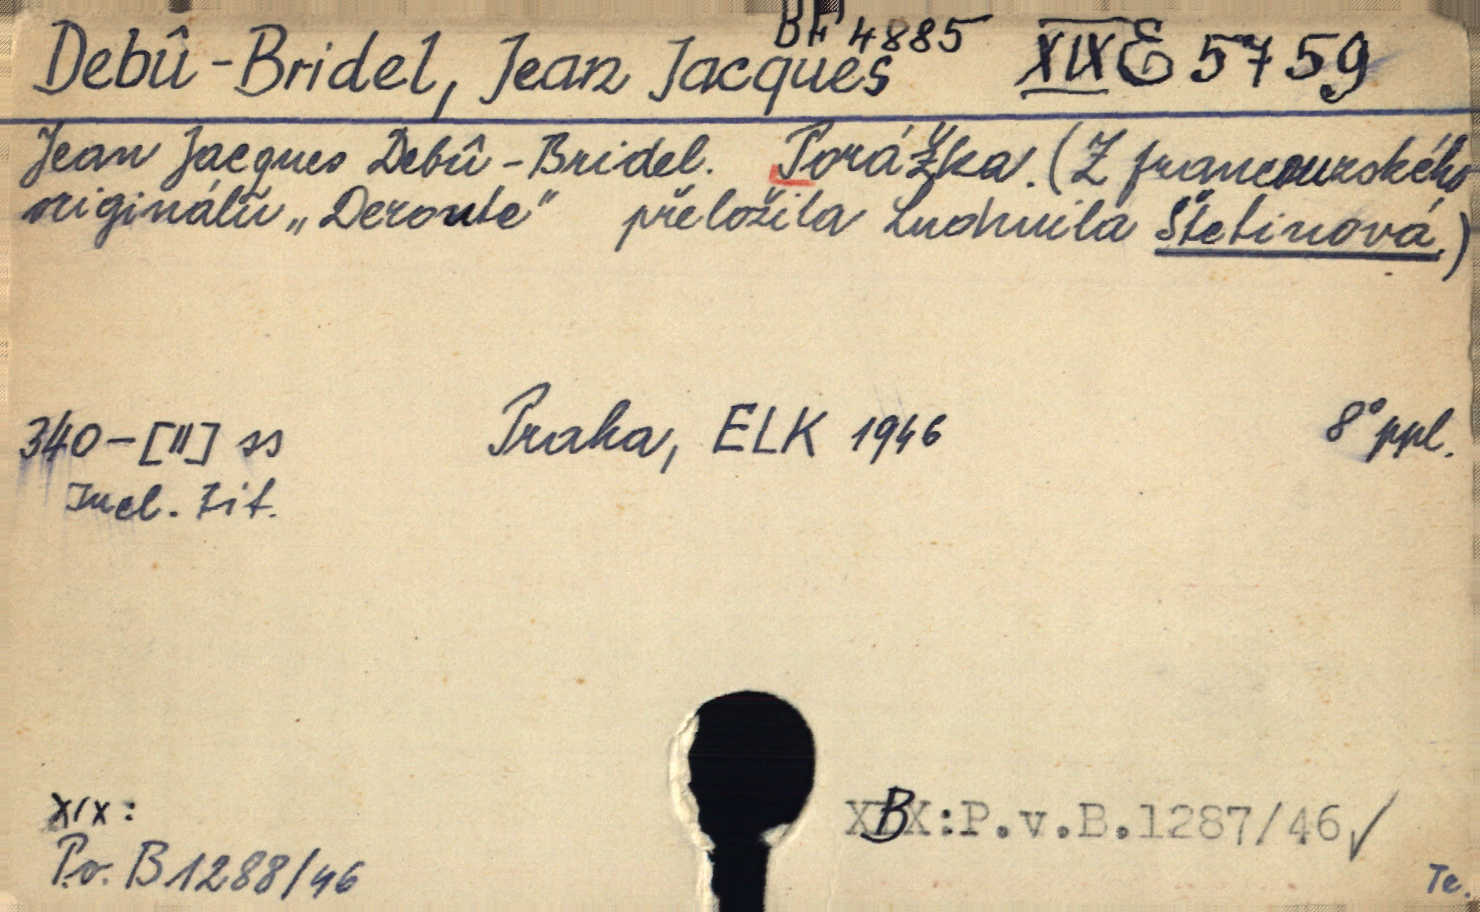 BF 4885
Debû-Bridel, Jean Jacques XIX E 5759
Jean Jacques Debû-Bridel. Porážka. (Z francouzského
originálu „Deroute" přeložila Ludmila Štětinová.)
340-[II] ss Praha, ELK 1946 8° ppl.
Incl. tit.
XIX: XIX:P.v.B.1287/46 ✓
B
P.v. B 1288/46
Te.